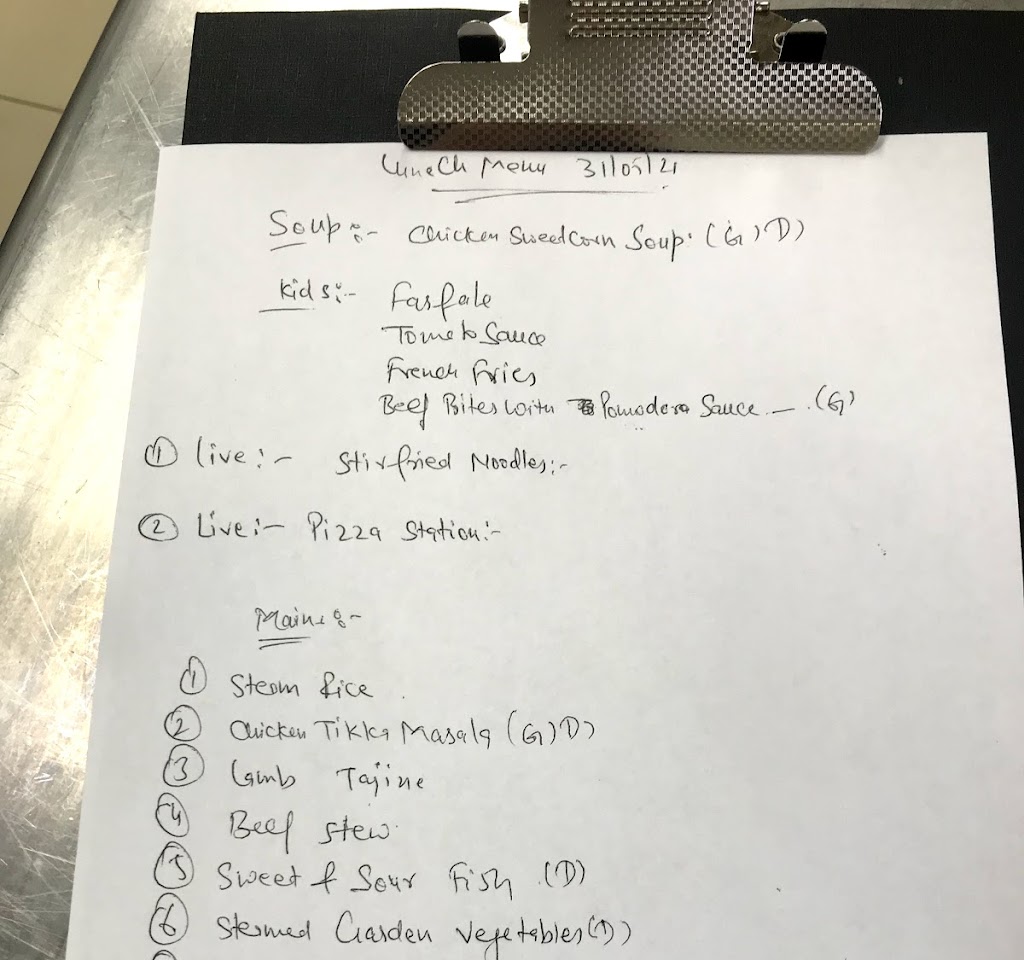 Lunch Menu 31/05/21
Soup:- Chicken Sweetcorn Soup. (G)(D)
Kids:- Farfale
Tometo Sauce
French Fries
Beef Bites with Pomodoro Sauce - (G)
① Live:- Stirfried Noodles:-
② Live:- Pizza Station:-
Mains:-
① Steam Rice
② Chicken Tikka Masala (G)(D)
③ Lamb Tajine
④ Beef Stew
⑤ Sweet & Sour Fish (D)
⑥ Stermed Garden Vegetables (D)